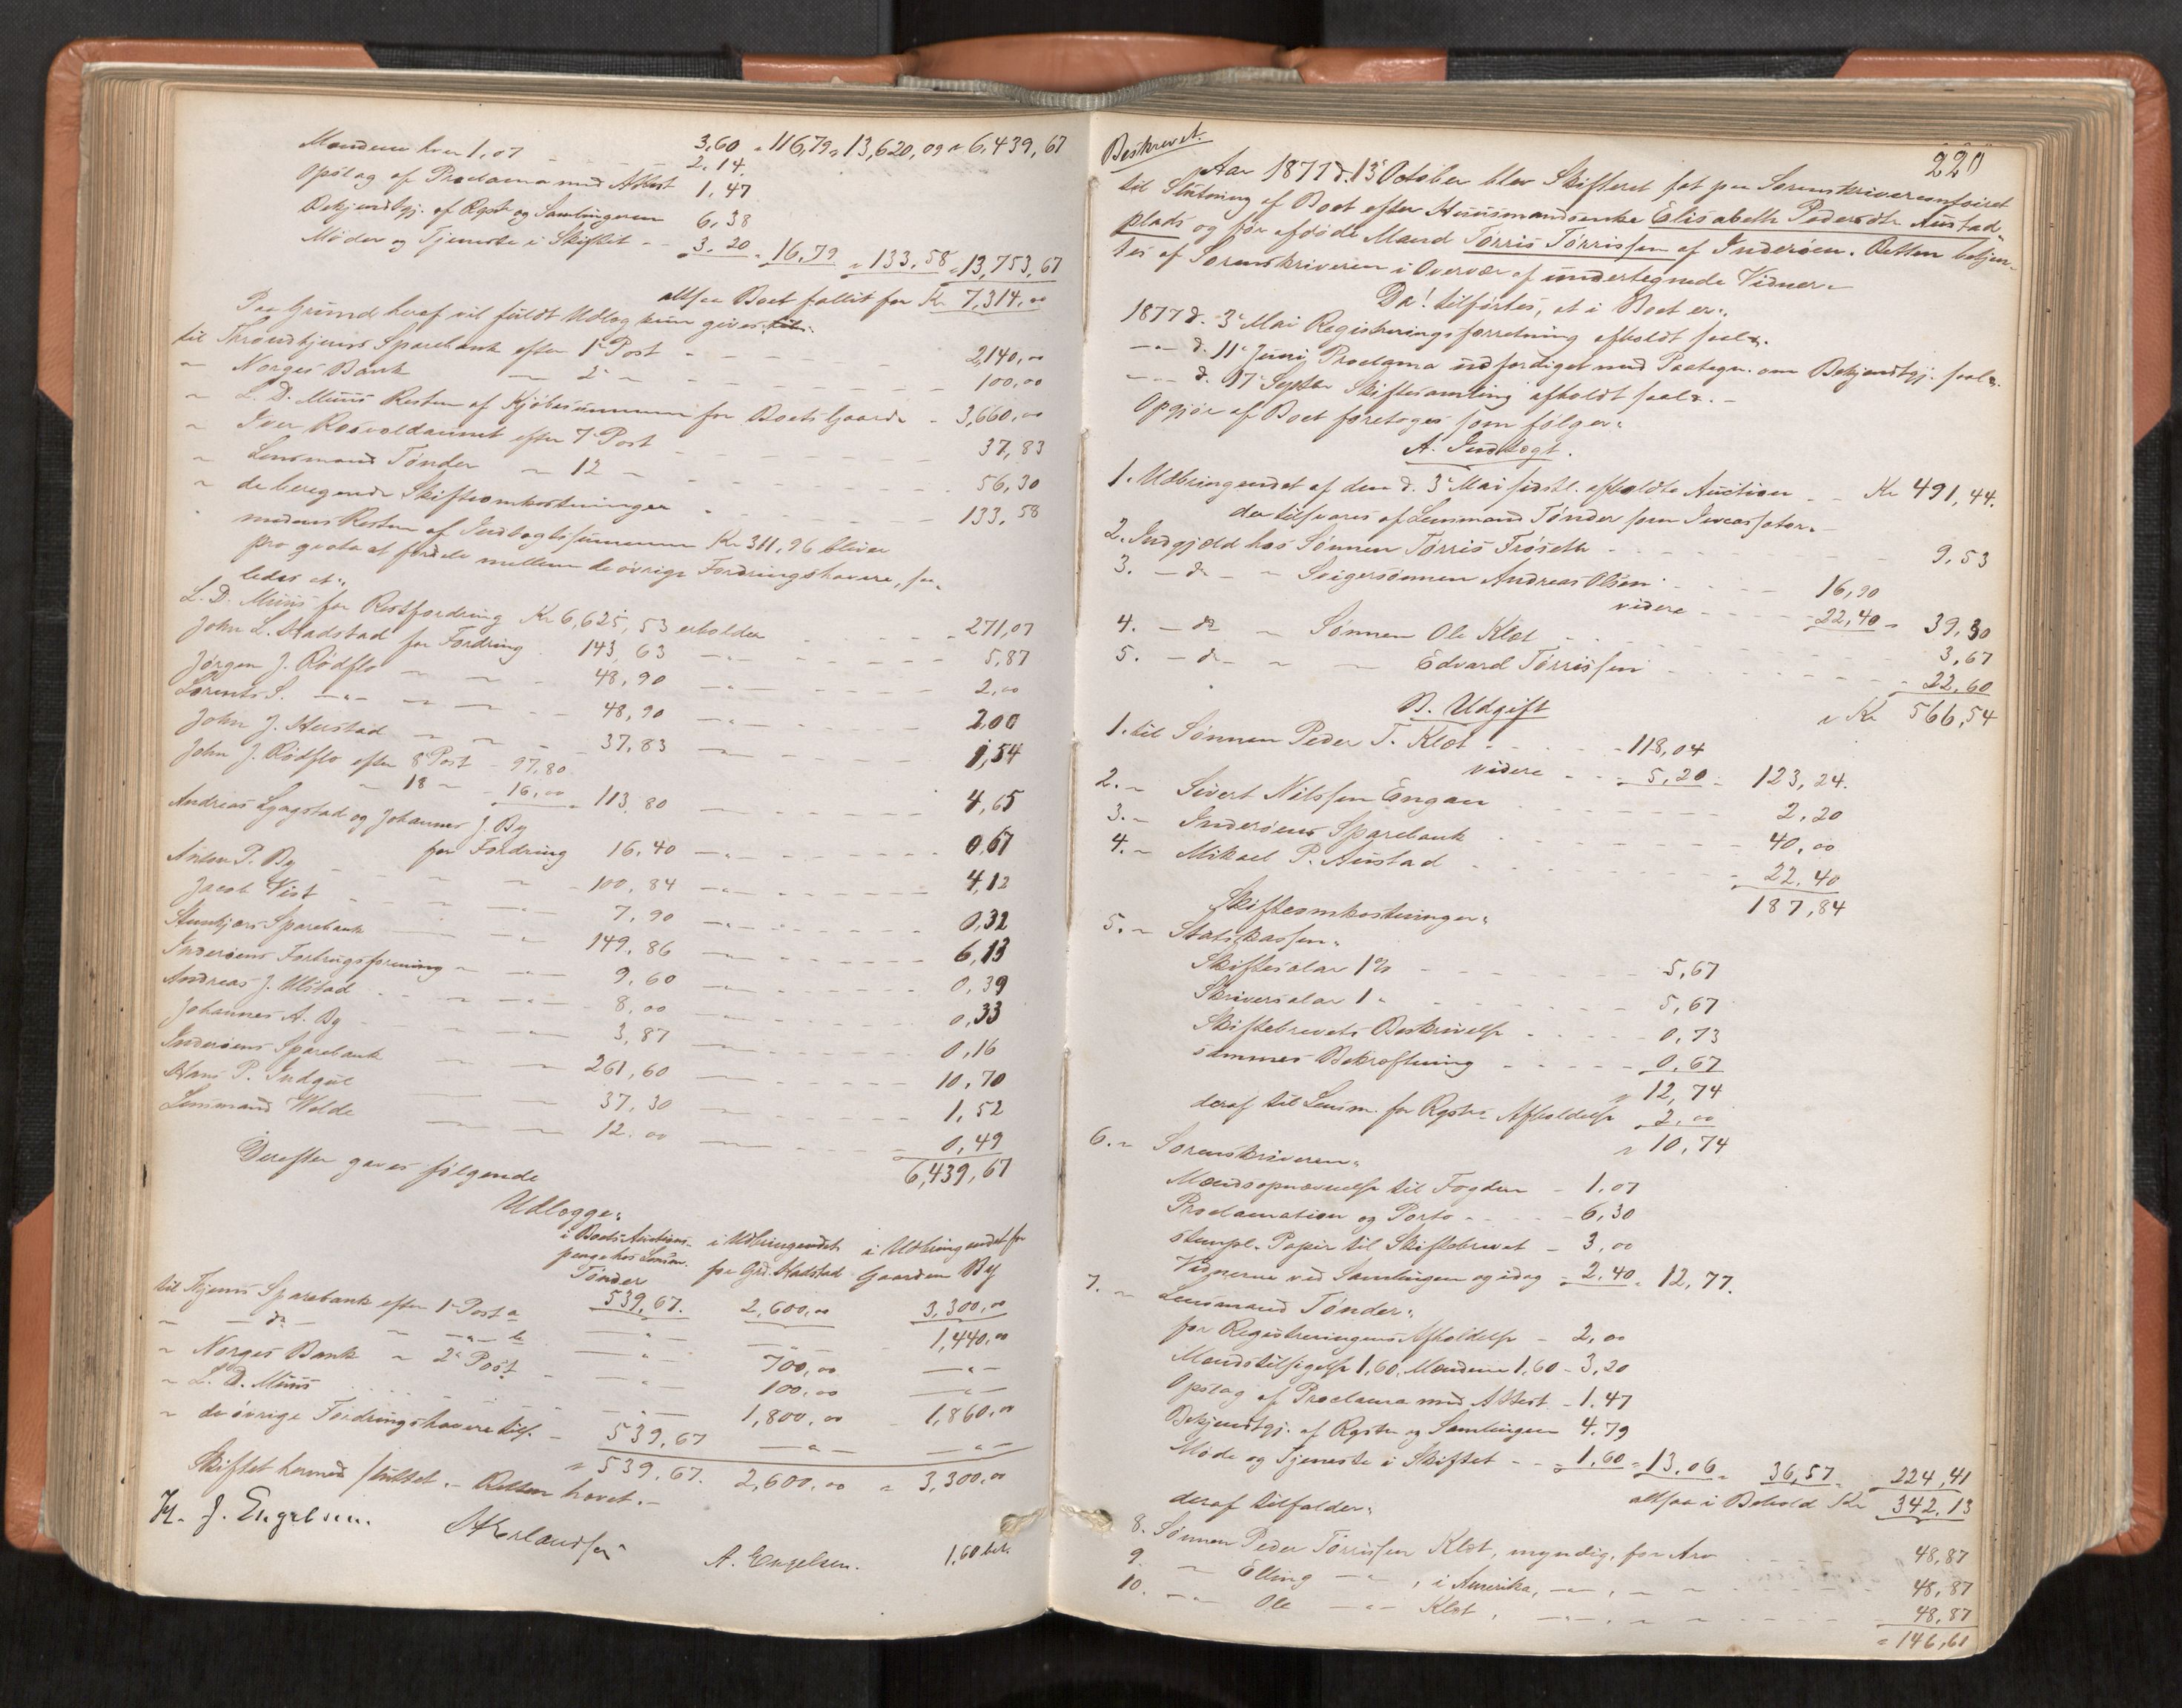 Mændene hver 1,07 - - - - 3,60 " 116,79 " 13,620,09 " 6,439,67
2,14
Opslag af Proclama med Attest 1,47
Bekjendtgj. af Rgstr og Samlingerne 6,38
Møder og Tjeneste i Skiftet - - 3,20 " 16,79 " 133,58 " 13,753,67
altsaa Boet fallit for Kr 7,314,00
Paa Grund heraf vil fuldt Udlæg kun gives
til Throndhjems Sparebank efter 1e Post - - - - 2,140,00
" Norges Bank — 2e " - - - - 100,00
" L. D. Muus Resten af Kjøbesummen for Boets Gaarde - 3,660,00
" Iver Rosvoldaunet efter 7e Post - - - - 37,83
" Lensmand Tønder " 12 " - - - - 56,30
" de beregnede Skifteomkostninger - - - - 133,58
medens Resten af Indtægtssummen Kr 311,96 bliver
pro qvota at fordele mellem de øvrige Fordringshavere, saa-
ledes at:
L. D. Muus for Restfordring Kr 6,625,53 erholder - - - 271,07
John L. Stadstad for Fordring 143,63 — " — - - - 5,87
Jørgen J. Rødflo " " 48,90 — " — - - - 2,00
Lorents S. — " — " " 48,90 — " — - - - 2,00
John J. Hustad " " 37,83 — " — - - - 1,54
John J. Rødflo efter 8e Post - 97,80
" 18 " - 16,00 " 113,80 — - - - 4,65
Andreas Lyngstad og Johannes J. By
for Fordring 16,40 — " — - - - 0,67
Anton P. By - - " " 100,84 — " — - - - 4,12
Jacob Vist - - " — 7,90 — " — - - - 0,32
Stenkjær Sparebank — " 149,86 — " — - - - 6,13
Inderøens Forbrugsforening " — " — 9,60 — " — - - - 0,39
Andreas J. Ulstad - - " — " — 8,00 — " — - - - 0,33
Johannes A. By - - " — " — 3,87 — - - - 0,16
Inderøens Sparebank — " — 261,60 — - - - 10,70
Hans P. Indgul — " — 37,30 — - - - 1,52
Lensmand Welde — " — 12,00 — - - - 0,49
6,439,67
Derefter gaves følgende
Udlægge:
i Boets Auctions- i Udbringendet i Udbringendet for
penge hos Lensm. for Grd. Stadstad Gaarden By
Tønder
539,67. 2,600,00 3,300,00
til Thjems Sparebank efter 1e Post a — " — — " — 1,440,00
" — do — " — " — b — " — 700,00 — " —
" Norges Bank " 2e Post - — " — 100,00 — " —
" L. D. Muus - - - — " — 1,800,00 - 1,860,00
" de øvrige Fordringshavere tils. - 539,67 — " — — " —
" 539,67. 2,600,00 " 3,300,00
Skiftet hermed sluttet. - Retten hævet. -
H. J. Engelsen. AErlandsen A. Engelsen. 1,60 bet.
220
Beskrevet.
Aar 1877 d. 13e October blev Skifteret sat paa Sorenskrivercontoiret
til Slutning af Boet efter Huusmandsenke Elisabeth Pedersdtr Austad-
plads og før afdøde Mand Tørris Tørrissen af Inderøen. Retten betjen-
tes af Sorenskriveren i Overvær af undertegnede Vidner. -
Da! tilførtes, at i Boet er:
1877 d. 3e Mai Registreringsforretning afholdt saal.
— " d. 11e Juni Proclama udfærdiget med Paategn. om Bekjendtgj. saal.
— " d. 17e Septbr Skiftesamling afholdt saal. -
Opgjør af Boet foretoges som følger:
A. Indtægt.
1. Udbringendet af den d. 3e Mai sidstl. afholdte Auction - - Kr 491,44.
der tilsvares af Lensmand Tønder som Incassator. -
2. Indgjæld hos Sønnen Tørris Trøseth - - - - 9,53
3. — do — " Svigersønnen Andreas Olsen - - 16,90
videre - - - 22,40 " 39,30
4. — do " Sønnen Ole Klæt - - - - 3,67
5. — do — " — Edvard Tørrissen - - - - 22,60
" Kr 566,54
B. Udgift
1. til Sønnen Peder T. Klæt - - - - 118,04
videre - - - 5,20 - 123,24.
2. " Sivert Nilssen Engan - - - - 2,20
3. " Inderøens Sparebank - - - - 40,00
4. " Mikael P. Austad - - - - 22,40
187,84
Skifteomkostninger:
5. " Statskassen:
Skiftesalær 1% - - - - 5,67
Skriversalær 1 " - - - - 5,67
Skiftebrevets Beskrivelse - - - - 0,73
sammes Bekræftning - - - - 0,67
" 12,74
deraf til Lensm. for Rgstr. Afholdelse 2,00
" 10,74
6. " Sorenskriveren:
Mændsopnævnelse til Fogden - 1,07
Proclamation og Porto - - - 6,30
stempl. Papir til Skiftebrevet - 3,00
Vidnerne ved Samlingen og idag - 2,40 " 12,77.
7. " Lensmand Tønder:
for Registreringens Afholdelse - 2,00
Mændstilsigelse 1,60, Mændene 1,60 - 3,20
Opslag af Proclama med Attest - 1,47
Bekjendtgj. af Rgstr. og Samlingen 4,79
Møde og Tjeneste i Skiftet - - 1,60 " 13,06 " 36,57 " 224,41
altsaa i Behold Kr 342,13
deraf tilfalder:
8. Sønnen Peder Tørrissen Klæt, myndig, for Arv - - 48,87
9. " Elling — " — , i Amerika, — " — , " " - - - 48,87
10. — " — Ole — " — Klæt, — " — , " " - - - 48,87
" 146,61